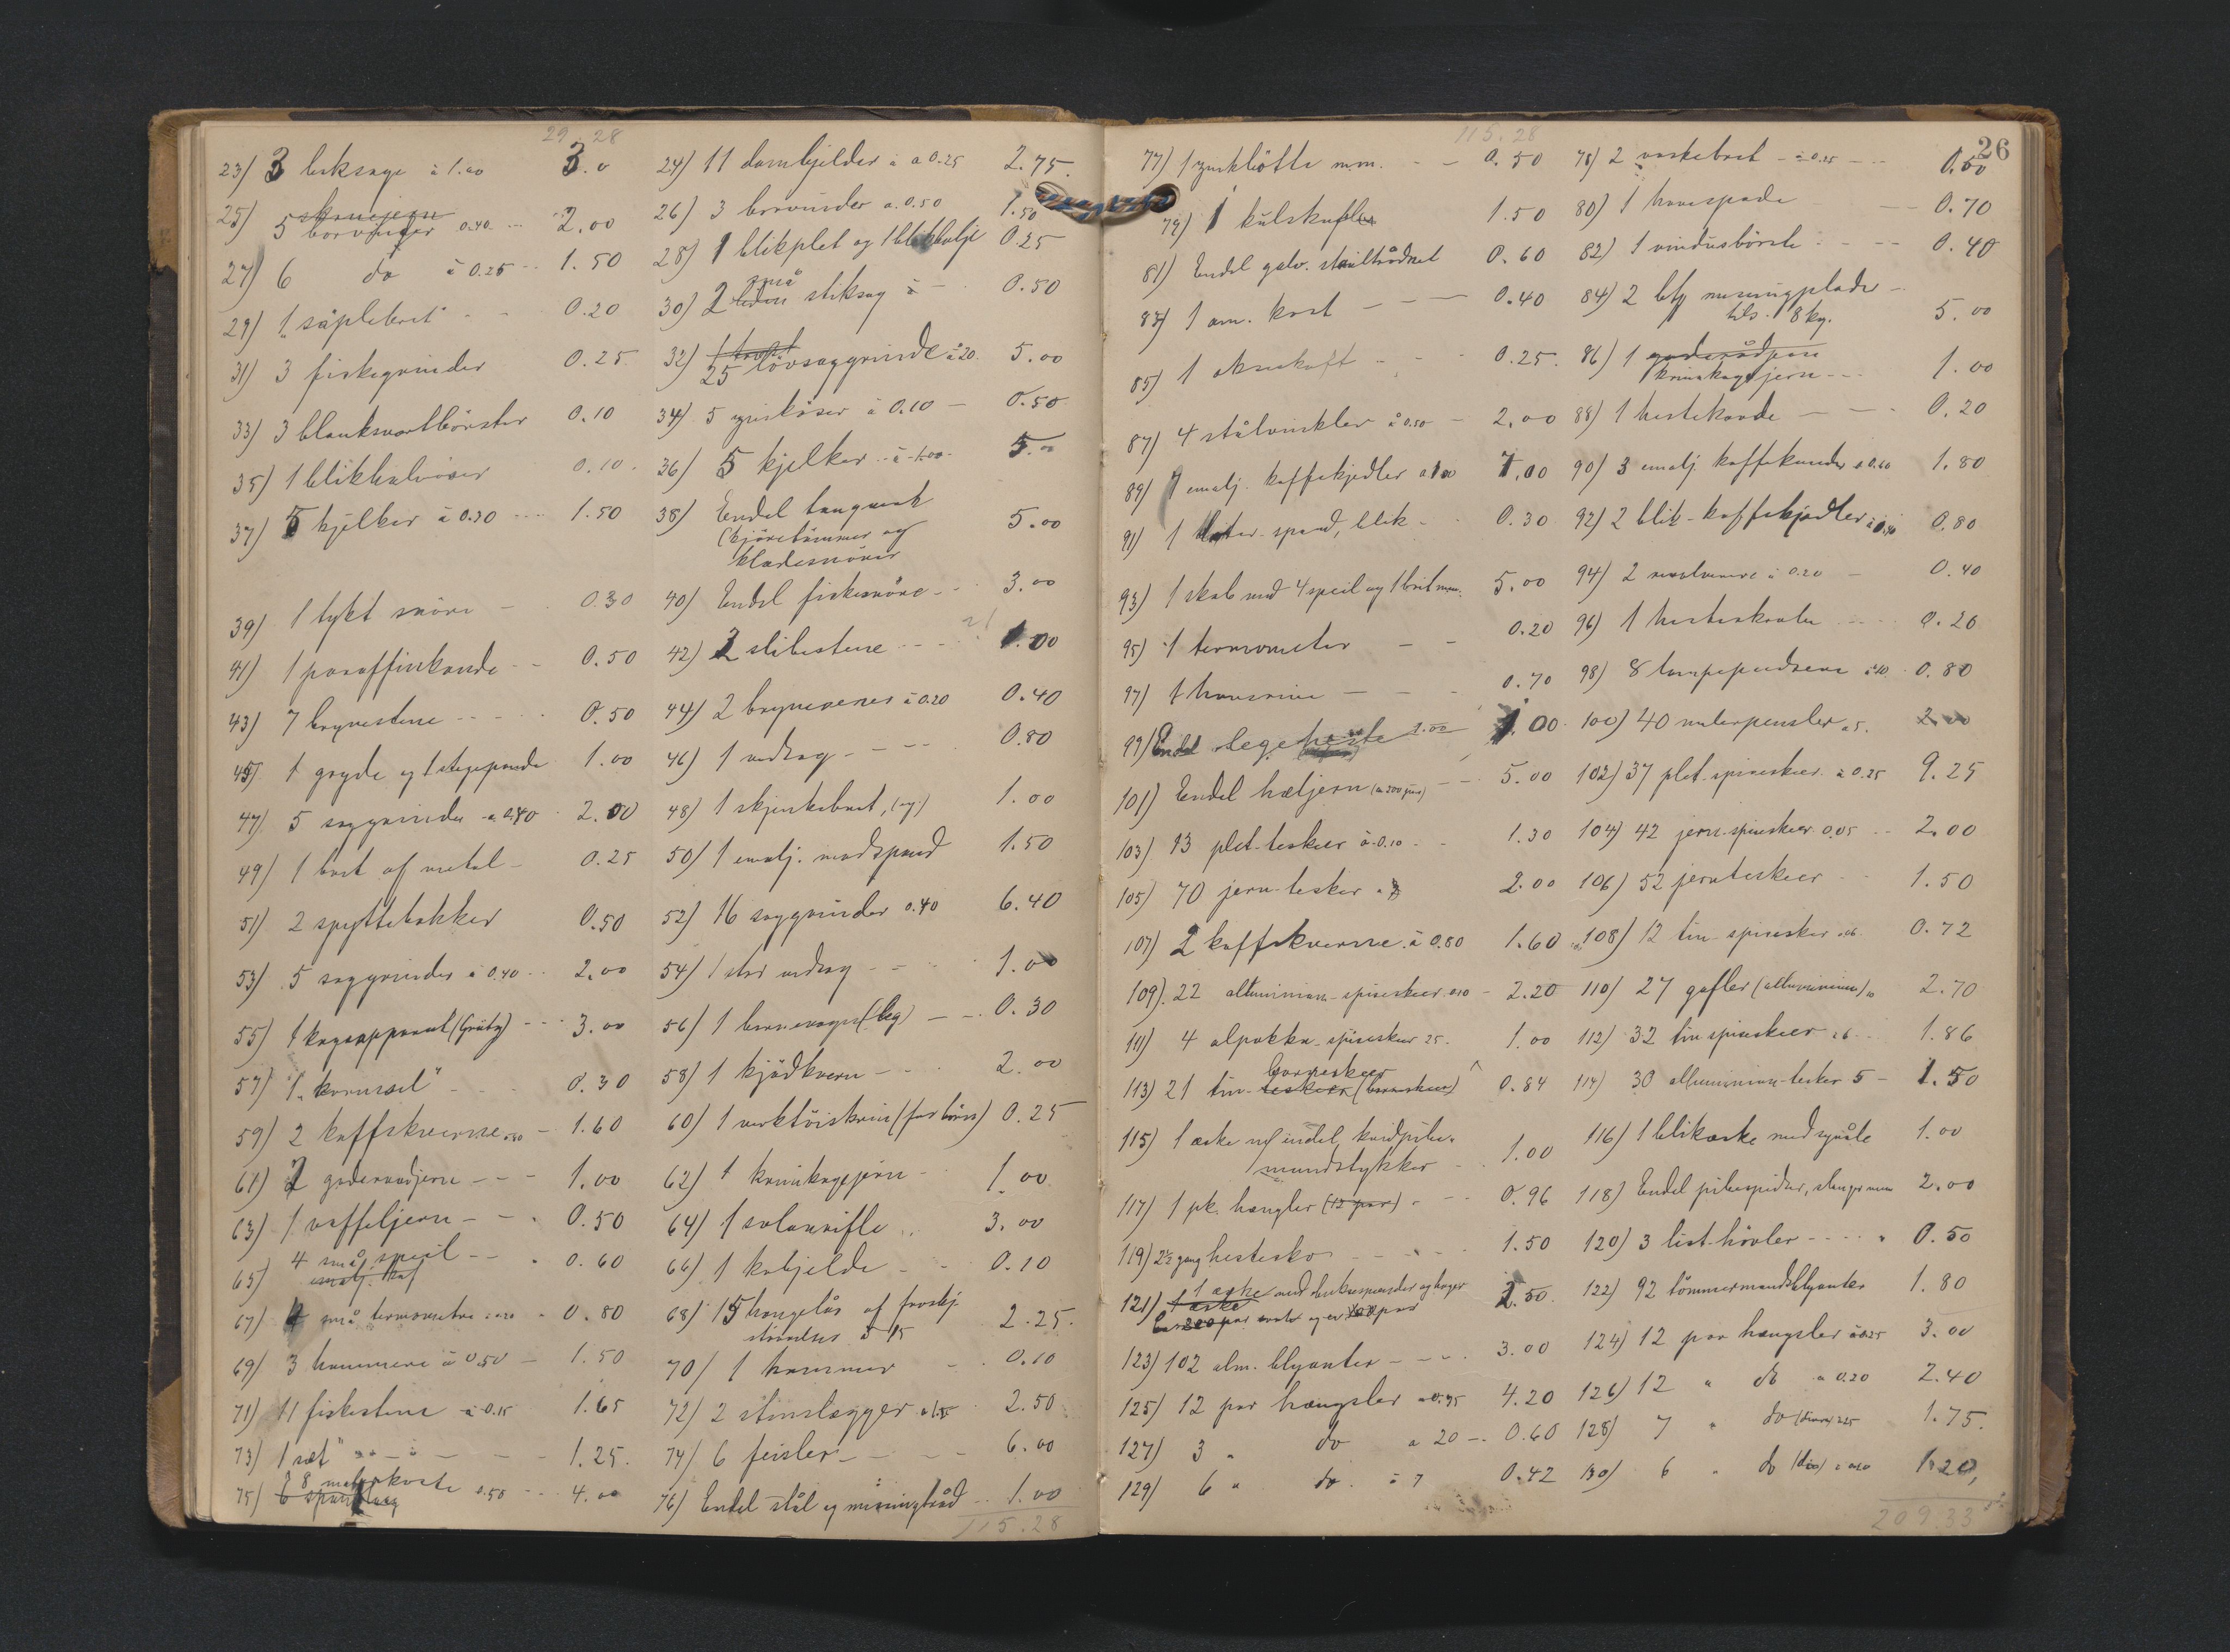 29.28
23) 3 løksage à 1.00 3.0 24) 11 dombjelder à a 0.25 2.75.
25) 5 borvinger 0.40 2.00 26) 3 borvinder a. 0.50 1.50
27) 6 do à 0.25 1.50 28) 1 blikplet og 1 blikbalje 0.25
29) 1 "såplebret" 0.20 30) 2 små stiksag à 0.50
31) 3 fiskegrinder 0.25. 32) 25 lövsaggrinde à 20. 5.00
33) 3 blanksvertbörster 0.10 34) 5 à 0.10 0.50
35) 1 0.10. 36) 5 kjelker à 1.00 5.00
37) 5 kjelker à 0.30 1.50 38) Endel taugverk
(kjöretömmer og
kladesnörer 5.00
39) 1 tykt snöre 0.30 40) Endel fiskesnöre 3.00
41) 1 paraffinkande 0.50 42) 2 slibestene 1.00
43) 7 brynestene 0.50 44) 2 à 0.20 0.40
45) 1 gryde og 1 stegepande 1.00 46) 1 vedsag 0.80
47) 5 saggrinder a 0.40 2.00 48) 1 skjenkebret, (ny) 1.00
49) 1 bret af metal 0.25 50) 1 emalj. madspand 1.50
51) 2 spyttebakker 0.50 52) 16 saggrinder 0.40 6.40
53) 5 saggrinder à 0.40 2.00 54) 1 stor vedsag 1.00
55) 1 kogeapparat (Grätz) 3.00 56) 1 barnevogn (leg) 0.30
57) 1 "kornsæl" 0.30 58) 1 kjödkvern 2.00
59) 2 kaffekverne 0.80 1.60 60) 1 verktöiskrin (for börn) 0.25
61) 2 goderaadjern 1.00 62) 1 krumkagejern 1.00
63) 1 vaffeljern 0.50 64) 1 salonrifle 3.00
65) 4 små speil 0.60 66) 1 kobjelde 0.10
67) 4 små termometre à 0.20 0.80 68) 15 hængelås af forskj.
störrelser à 15 2.25.
69) 3 hammere à 0.50 1.50 70) 1 hammer 0.10
71) 11 fiskestene à 0.15 1.65 72) 2 stenslægger a 1.25 2.50
73) 1 sæt " 1.25. 74) 6 feisler 6.00
75) 8 malerkoste 0.50 4.00 76) Endel stål og messingtråd 1.00
115.28
26
115.28
77) 1 zinkbötte m.m. 0.50 78) 2 vaskebret à 0.25 0.50
79) 1 kulskuffe 1.50 80) 1 havespade 0.70
81) Endel galv. ståltrådnet 0.60 82) 1 vindusbörste 0.40
83) 1 am. kost 0.40 84) 2 messingplader
tils. 8 kg. 5.00
85) 1 økseskaft 0.25. 86) 1 goderådjern
krumkagejern 1.00
87) 4 stålvinkler à 0.50 2.00 88) 1 hestekarde 0.20
89) 7 emalj. kaffekjedler a 1.00 7.00 90) 3 emalj. kaffekander a 0.60 1.80
91) 1 spand, blik 0.30 92) 2 blik-kaffekjedler à 0.40 0.80
93) 1 skab med 4 speil og 1 bret m.m. 5.00 94) 2 à 0.20 0.40
95) 1 termometer 0.20 96) 1 hesteskrabe 0.20
97) 1 haverive 0.70 98) 8 lampepudsere à 10 0.80
99) Endel lege 1.00 1.00 100) 40 malerpensler a 5. 2.00
101) Endel hæljern (ca 200 par) 5.00 102) 37 plet-spiseskeer à 0.25 9.25
103) 13 plet-teskeer à 0.10 1.30 104) 42 jern-spiseskeer 0.05 2.00
105) 70 jern-tesker a 3 2.00 106) 52 jernteskeer 1.50
107) 2 kaffekverne à 0.80 1.60 108) 12 tin-spisesker à 6 0.72
109) 22 alluminium-spiseskeer 0.10 2.20 110) 27 gafler (alluminium) 10 2.70
111) 4 alpakka-spiseskeer 25. 1.00 112) 32 tin spiseskeer à 6 1.86
113) 21 tin-teskeer (barneskeer) barneskeer 0.84 114) 30 alluminium-tesker 5 1.50
115) 1 æske m/ endel kridtpiber
mundstykker 1.00 116) 1 blikæske med synåle 1.00
117) 1 pk. hængsler (12 par) 0.96 118) Endel pibespidser, slanger m.m 2.00
119) 2½ gang hestesko 1.50 120) 3 list-hövler 0.50
121) 1 æske med buksespænder og hager 2.50. 122) 92 tömmermandsblyanter 1.80
123) 102 alm. blyanter 3.00 124) 12 par hængsler à 0.25 3.00
125) 12 par hængsler a 0.35 4.20 126) 12 " do a 0.20 2.40
127) 3 " do a 20 0.60 128) 7 " do (divers) à 25 1.75.
129) 6 " do. à 7 0.42 130) 6 " do (div) à 0.20 1.20,
209.33